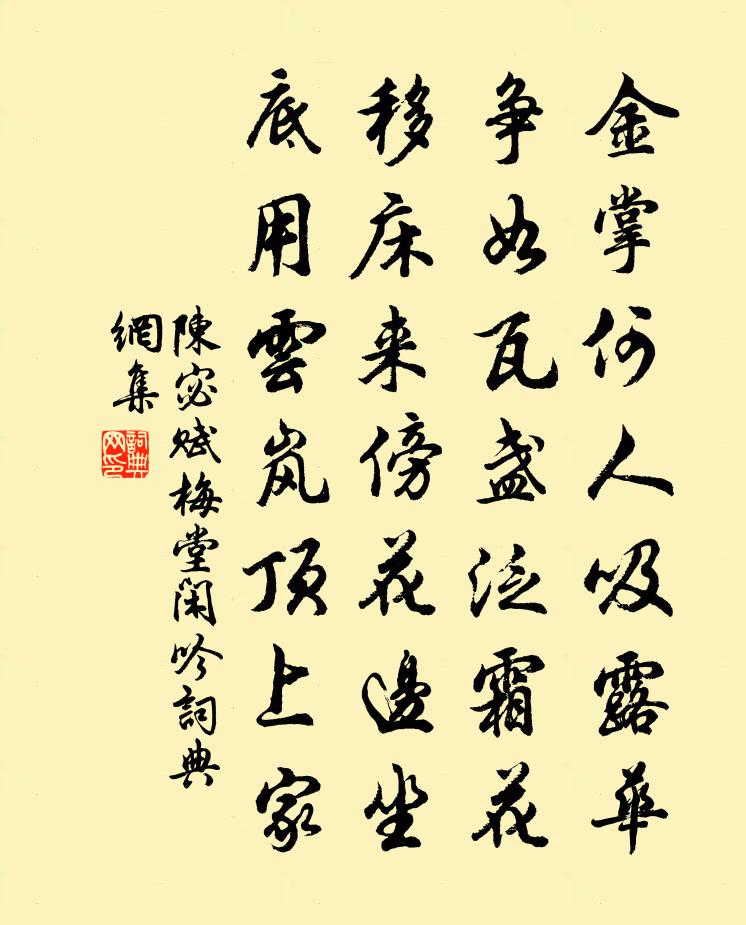 金掌何人吸露華
争如瓦盏泛霜花
移床来傍花邊坐
底用雲岚顶上家
陳宓赋梅堂閑吟詞典
網集
詞典网印